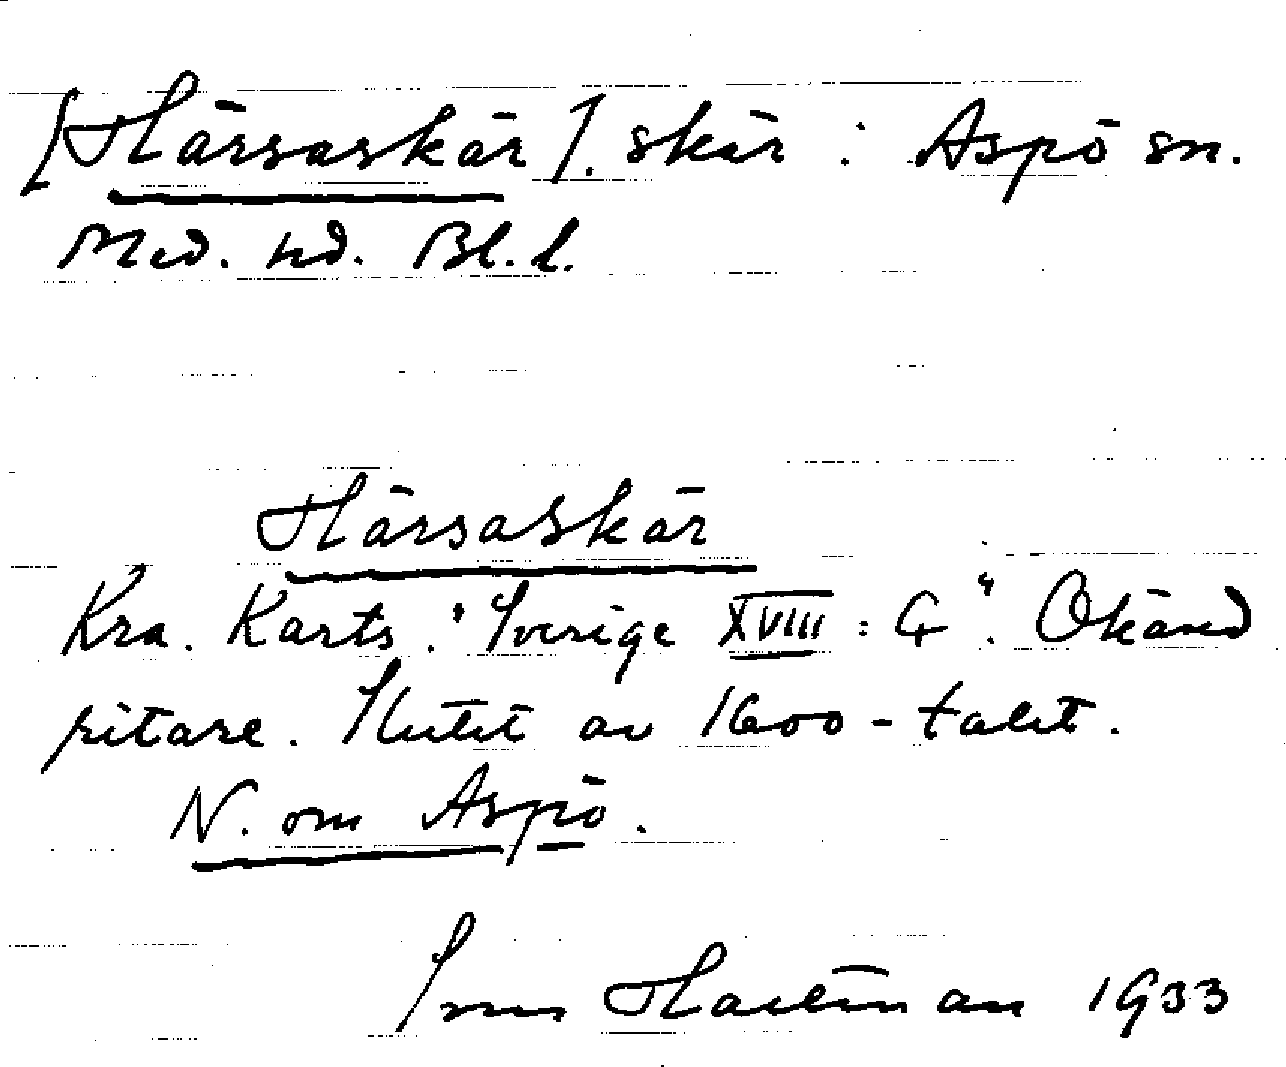 [Härsaskär]. skär : Aspö sn.
Med. hd. Bl. l.
Härsaskär
Kra. Karts. "Sverige XVIII : G". Okänd
ritare. Slutet av 1600-talet.
N. om Aspö.
Hartman 1933